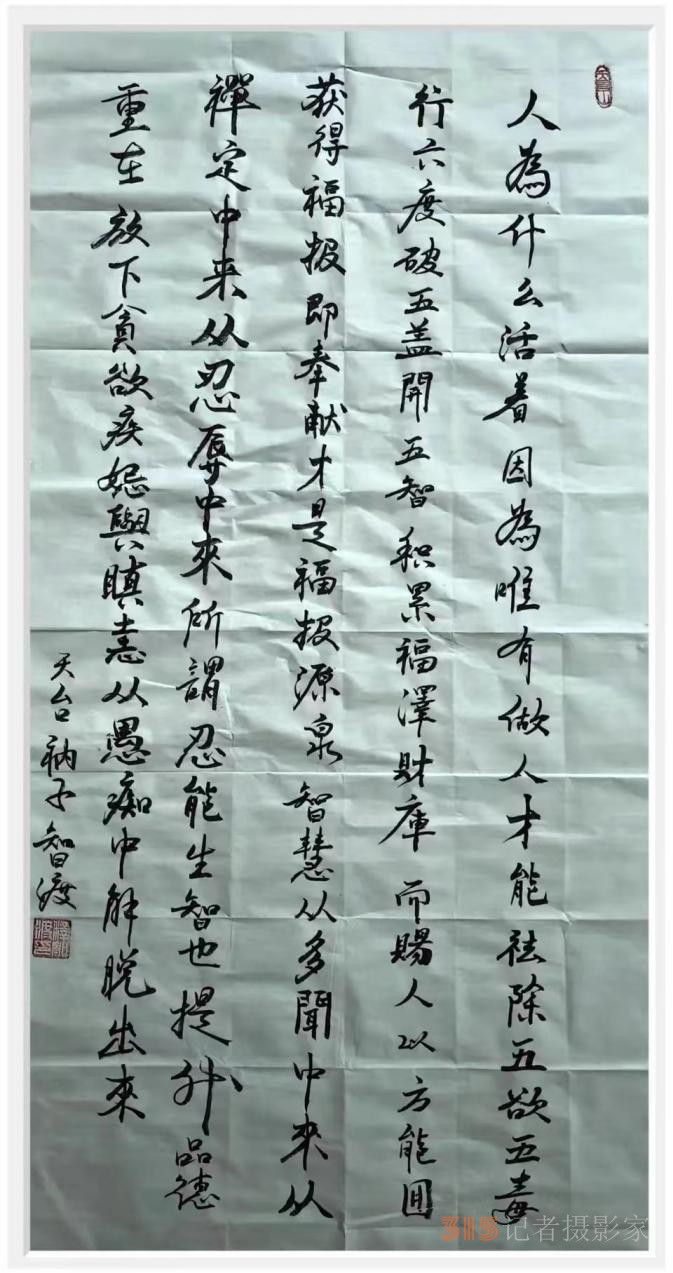 人為什么活着因為唯有做人才能祛除五欲五毒
行六度破五盖開五智积累福澤財庫而賜人以方能圆
获得福报即奉献才是福报源泉智慧从多聞中來从
禪定中来从忍辱中來所謂忍能生智也提升品德
重在放下貪欲疾怨與瞋恚从愚痴中解脱出來
天台衲子智渡
315记者摄影家